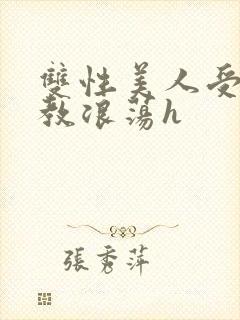 雙性美人受
教浪蕩h
張秀萍